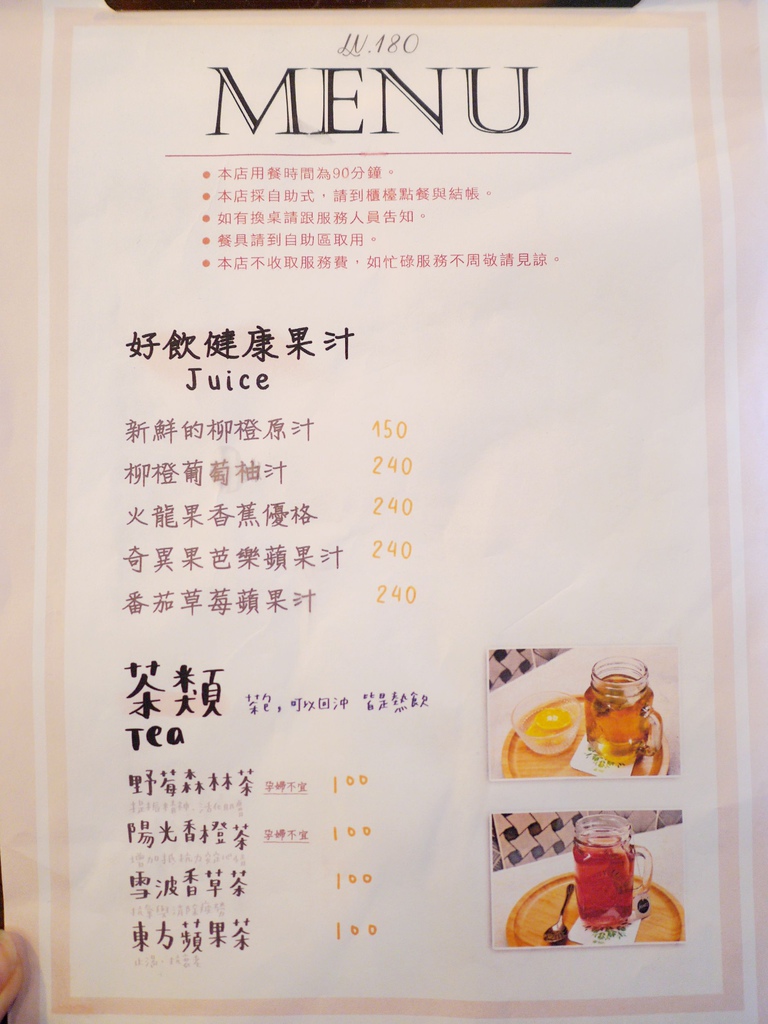 LN.180
MENU
本店用餐時間為90分鐘。
本店採自助式，請到櫃檯點餐與結帳。
如有換桌請跟服務人員告知。
餐具請到自助區取用。
本店不收取服務費，如忙碌服務不周敬請見諒。
好飲健康果汁
Juice
新鮮的柳橙原汁 150
柳橙葡萄柚汁 240
火龍果香蕉優格 240
奇異果芭樂蘋果汁 240
番茄草莓蘋果汁 240
茶類 茶包，可以回沖 皆是熱飲
Tea
野莓森林茶 孕婦不宜 100
陽光香橙茶 孕婦不宜 100
雪波香草茶 100
東方蘋果茶 100